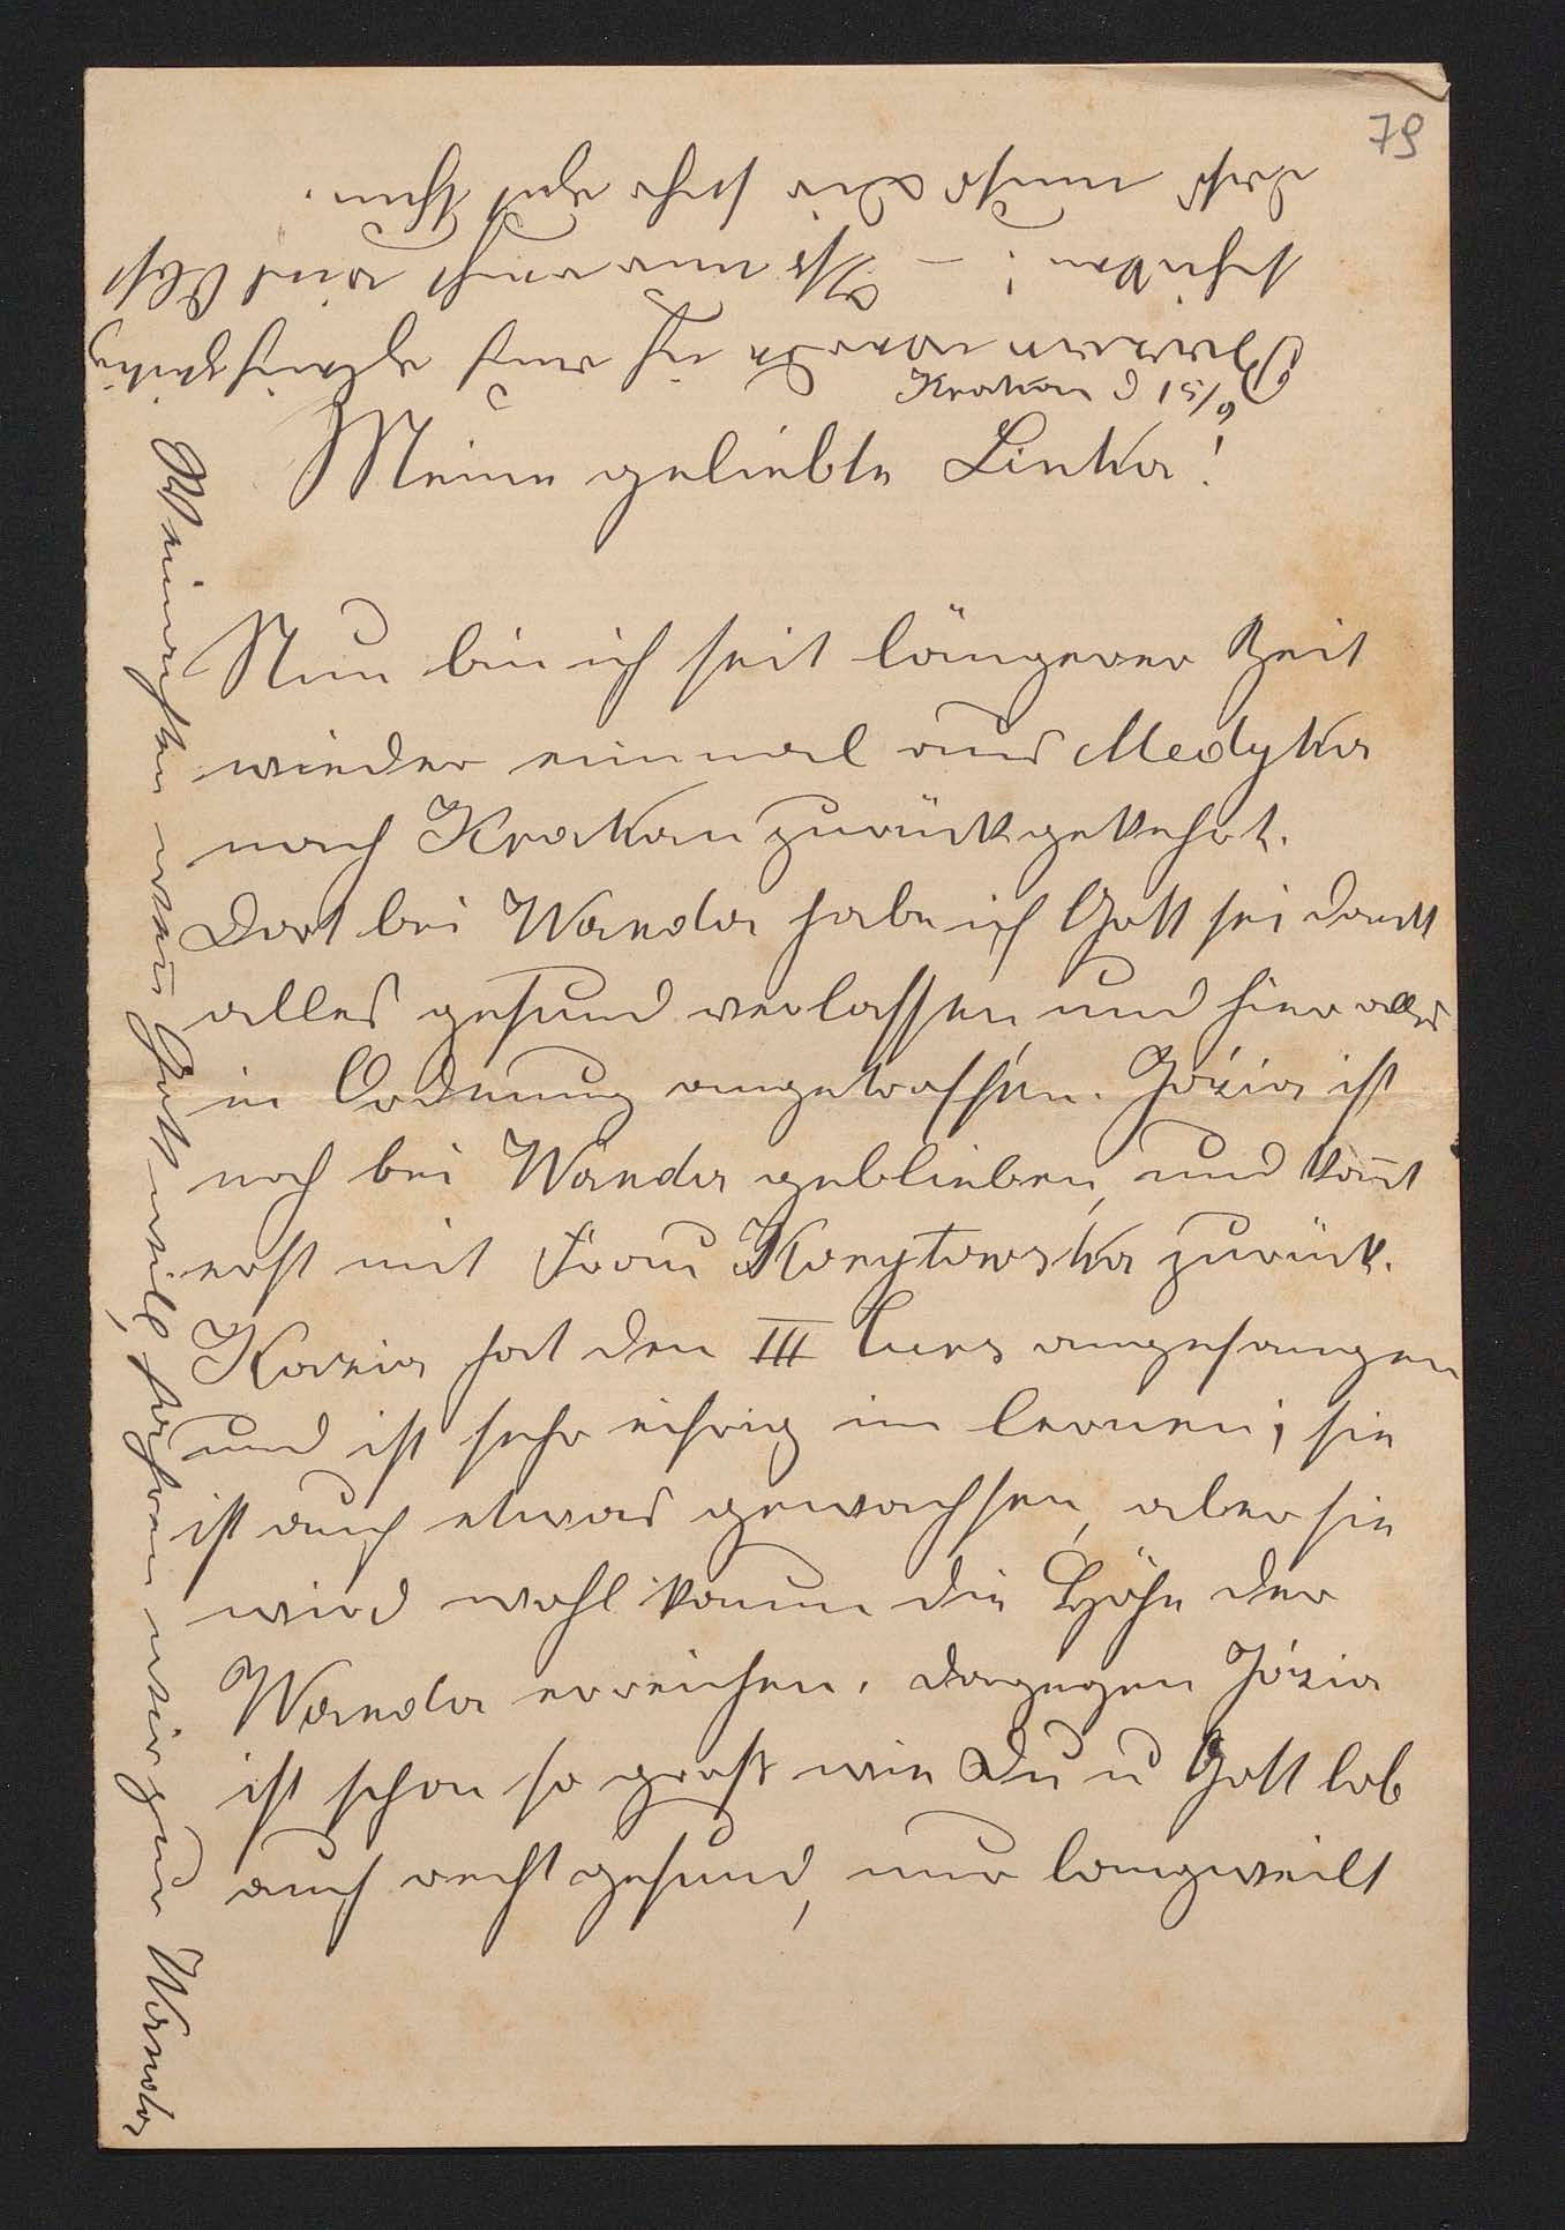 79
Krakau d 15/9
Meine geliebte Linka!
Nun bin ich seit längerer Zeit
wieder einmal aus Medyka
nach Krakau zurückgekehrt.
Dort bei Wanda habe ich Gott sei dank
alles gesund verlassen, und hier alles
in Ordnung angetroffen. Józia ist
noch bei Wanda geblieben, und kom̄t
erst mit Frau Korytowska zurück.
Kazia hat den III Curs angefangen
und ist sehr eifrig im lernen; sie
ist auch etwas gewachsen, aber sie
wird wohl kaum die Höhe der
Wanda erreichen. dagegen Józia
ist schon so groß wie Du u Gott lob
auch recht gesund, nur langweilt
Weinachten wen̄ Gott will, fahren wir zur Wanda
werde ich auch gleichzeitig
schicken; – Iß nur recht viel Obst
das muß Dir sehr gut thun.